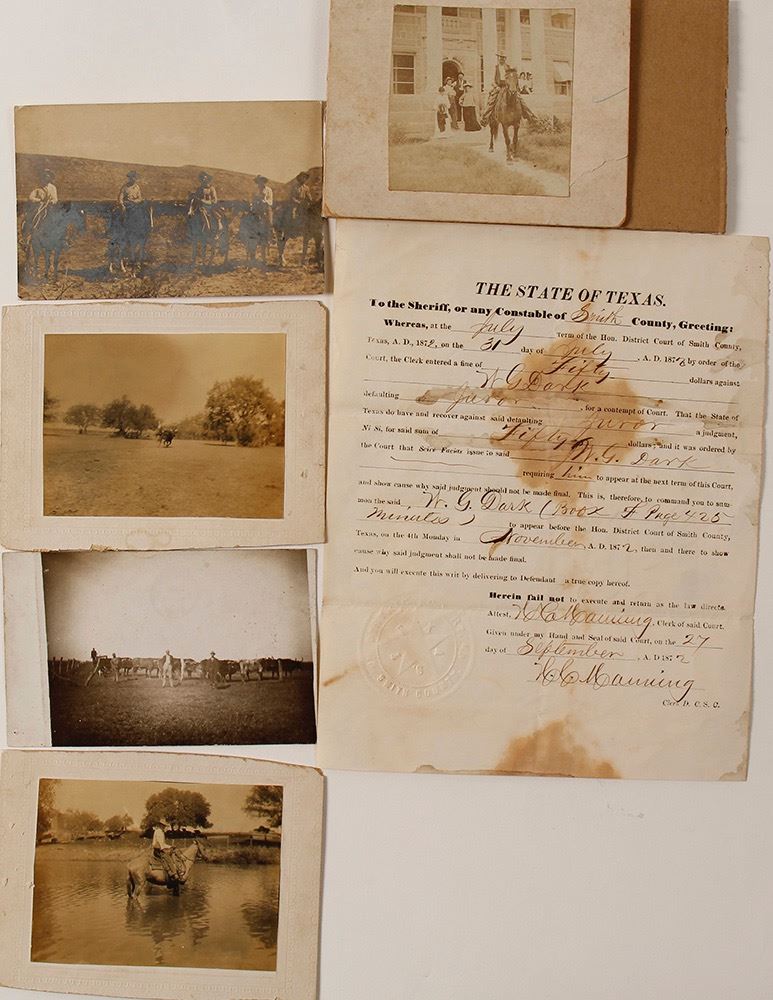 THE STATE OF TEXAS.
To the Sheriff, or any Constable of Smith County, Greeting:
Whereas, at the July Term of the Hon. District Court of Smith County,
Texas, A. D., 1872, on the 31 day of July, A. D. 1872 by order of the
Court, the Clerk entered a fine of Fifty dollars against
W G Dark
defaulting Juror, for a contempt of Court. That the State of
Texas do have and recover against said defaulting Juror a judgment,
Ni Si, for said sum of Fifty dollars; and it was ordered by
the Court that Scire Facias issue to said W. G. Dark
requiring him to appear at the next term of this Court,
and show cause why said judgment should not be made final. This is, therefore, to command you to sum-
mon the said W. G. Dark (Book F Page 425
Minutes) to appear before the Hon. District Court of Smith County,
Texas, on the 4th Monday in November A. D. 1872, then and there to show
cause why said judgment shall not be made final.
And you will execute this writ by delivering to Defendant a true copy hereof.
Herein fail not to execute and return as the law directs.
Attest, Manning, Clerk of said Court.
Given under my Hand and Seal of said Court, on the 27
day of September, A. D 1872
Manning
Clerk D. C. S. C.